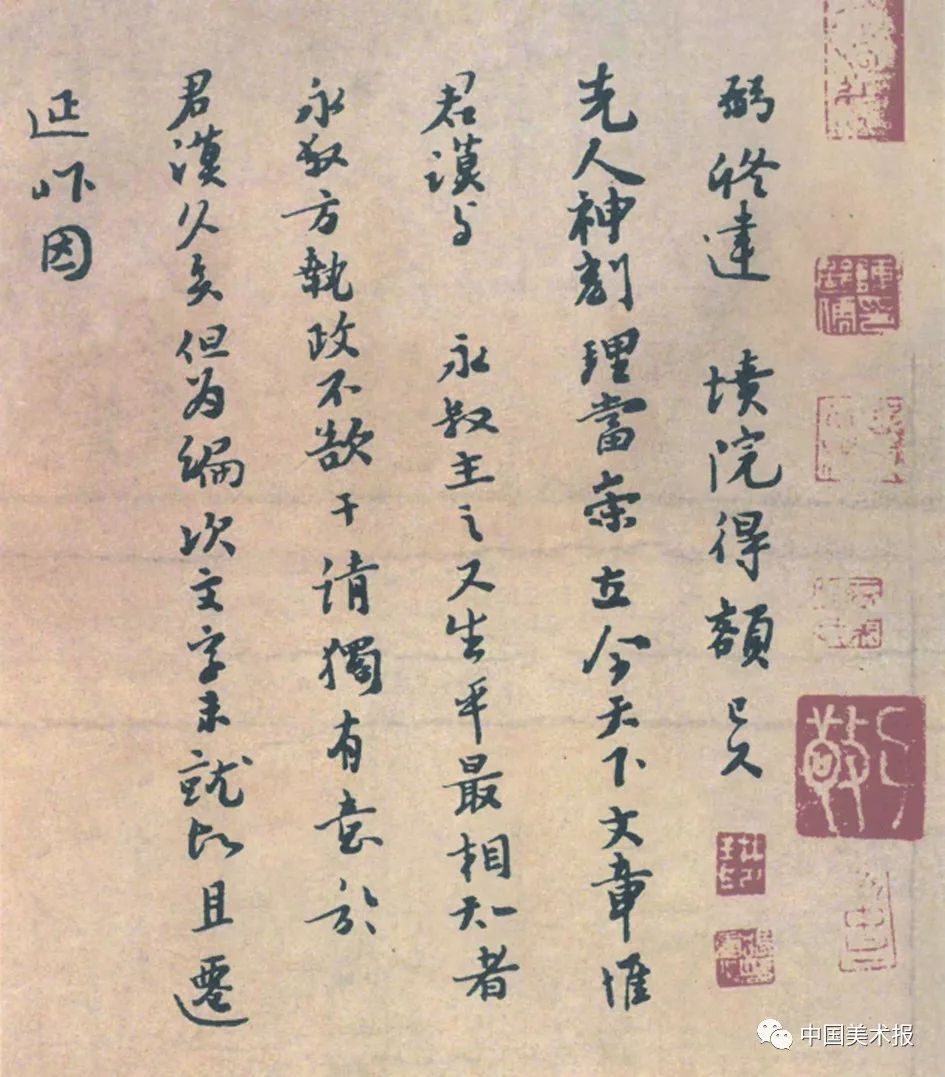 弼修建 墳院得額已久
先人神刻理當亦立今天下文章惟
君謨与 永叔主之又生平最相知者
永叔方執政不欲干請獨有意於
君謨久矣但为編次文字未就故且遷
延昨因
中国美术报